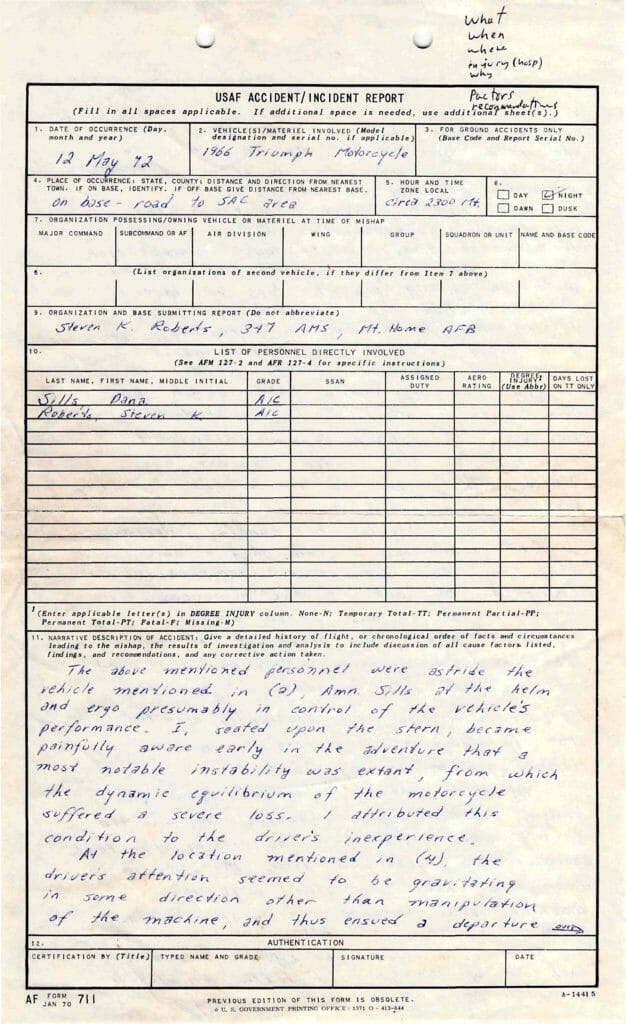 What
when
where
injury (hosp)
why
factors
recommendations
USAF ACCIDENT/INCIDENT REPORT
(Fill in all spaces applicable. If additional space is needed, use additional sheet(s).)
1. DATE OF OCCURRENCE (Day, month and year)
12 May 72
2. VEHICLE(S)/MATERIEL INVOLVED (Model designation and serial no. if applicable)
1966 Triumph Motorcycle
3. FOR GROUND ACCIDENTS ONLY (Base Code and Report Serial No.)
4. PLACE OF OCCURRENCE; STATE, COUNTY; DISTANCE AND DIRECTION FROM NEAREST TOWN. IF ON BASE, IDENTIFY. IF OFF BASE GIVE DISTANCE FROM NEAREST BASE.
on base - road to SAC area
5. HOUR AND TIME ZONE LOCAL
circa 2300 Mt.
6.
DAY NIGHT
DAWN DUSK
7. ORGANIZATION POSSESSING/OWNING VEHICLE OR MATERIEL AT TIME OF MISHAP
MAJOR COMMAND SUBCOMMAND OR AF AIR DIVISION WING GROUP SQUADRON OR UNIT NAME AND BASE CODE
8. (List organizations of second vehicle, if they differ from Item 7 above)
9. ORGANIZATION AND BASE SUBMITTING REPORT (Do not abbreviate)
Steven K. Roberts, 347 AMS, Mt. Home AFB
10. LIST OF PERSONNEL DIRECTLY INVOLVED
(See AFM 127-2 and AFR 127-4 for specific instructions)
LAST NAME, FIRST NAME, MIDDLE INITIAL GRADE SSAN ASSIGNED DUTY AERO RATING DEGREE INJURY1 (Use Abbr) DAYS LOST ON TT ONLY
Sills, Dana A1C
Roberts, Steven K. A1C
1 (Enter applicable letter(s) in DEGREE INJURY column. None-N; Temporary Total-TT; Permanent Partial-PP;
Permanent Total-PT; Fatal-F; Missing-M)
11. NARRATIVE DESCRIPTION OF ACCIDENT: Give a detailed history of flight, or chronological order of facts and circumstances
leading to the mishap, the results of investigation and analysis to include discussion of all cause factors listed,
findings, and recommendations, and any corrective action taken.
The above mentioned personnel were astride the
vehicle mentioned in (2), Amn. Sills at the helm
and ergo presumably in control of the vehicle's
performance. I, seated upon the stern, became
painfully aware early in the adventure that a
most notable instability was extant, from which
the dynamic equilibrium of the motorcycle
suffered a severe loss. I attributed this
condition to the driver's inexperience.
At the location mentioned in (4), the
driver's attention seemed to be gravitating
in some direction other than manipulation
of the machine, and thus ensued a departure
12. AUTHENTICATION
CERTIFICATION BY (Title) TYPED NAME AND GRADE SIGNATURE DATE
AF FORM JAN 70 711
PREVIOUS EDITION OF THIS FORM IS OBSOLETE.
U.S. GOVERNMENT PRINTING OFFICE: 1971 O - 413-844
A-14415